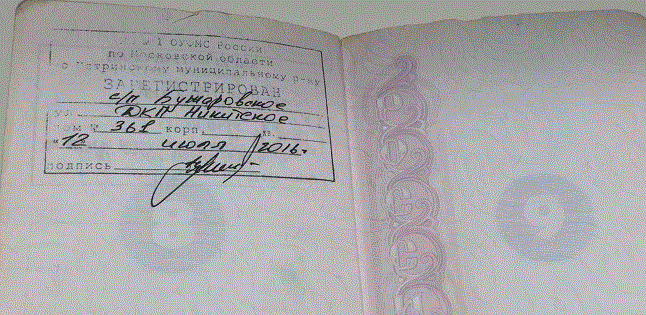 ОУФМС России
по Московской области
Истринскому муниципальному р-ну
ЗАРЕГИСТРИРОВАН
с/п Бужаровское
ул. ДКП Никитское
361 корп.
"12 июля 2016 г
подпись